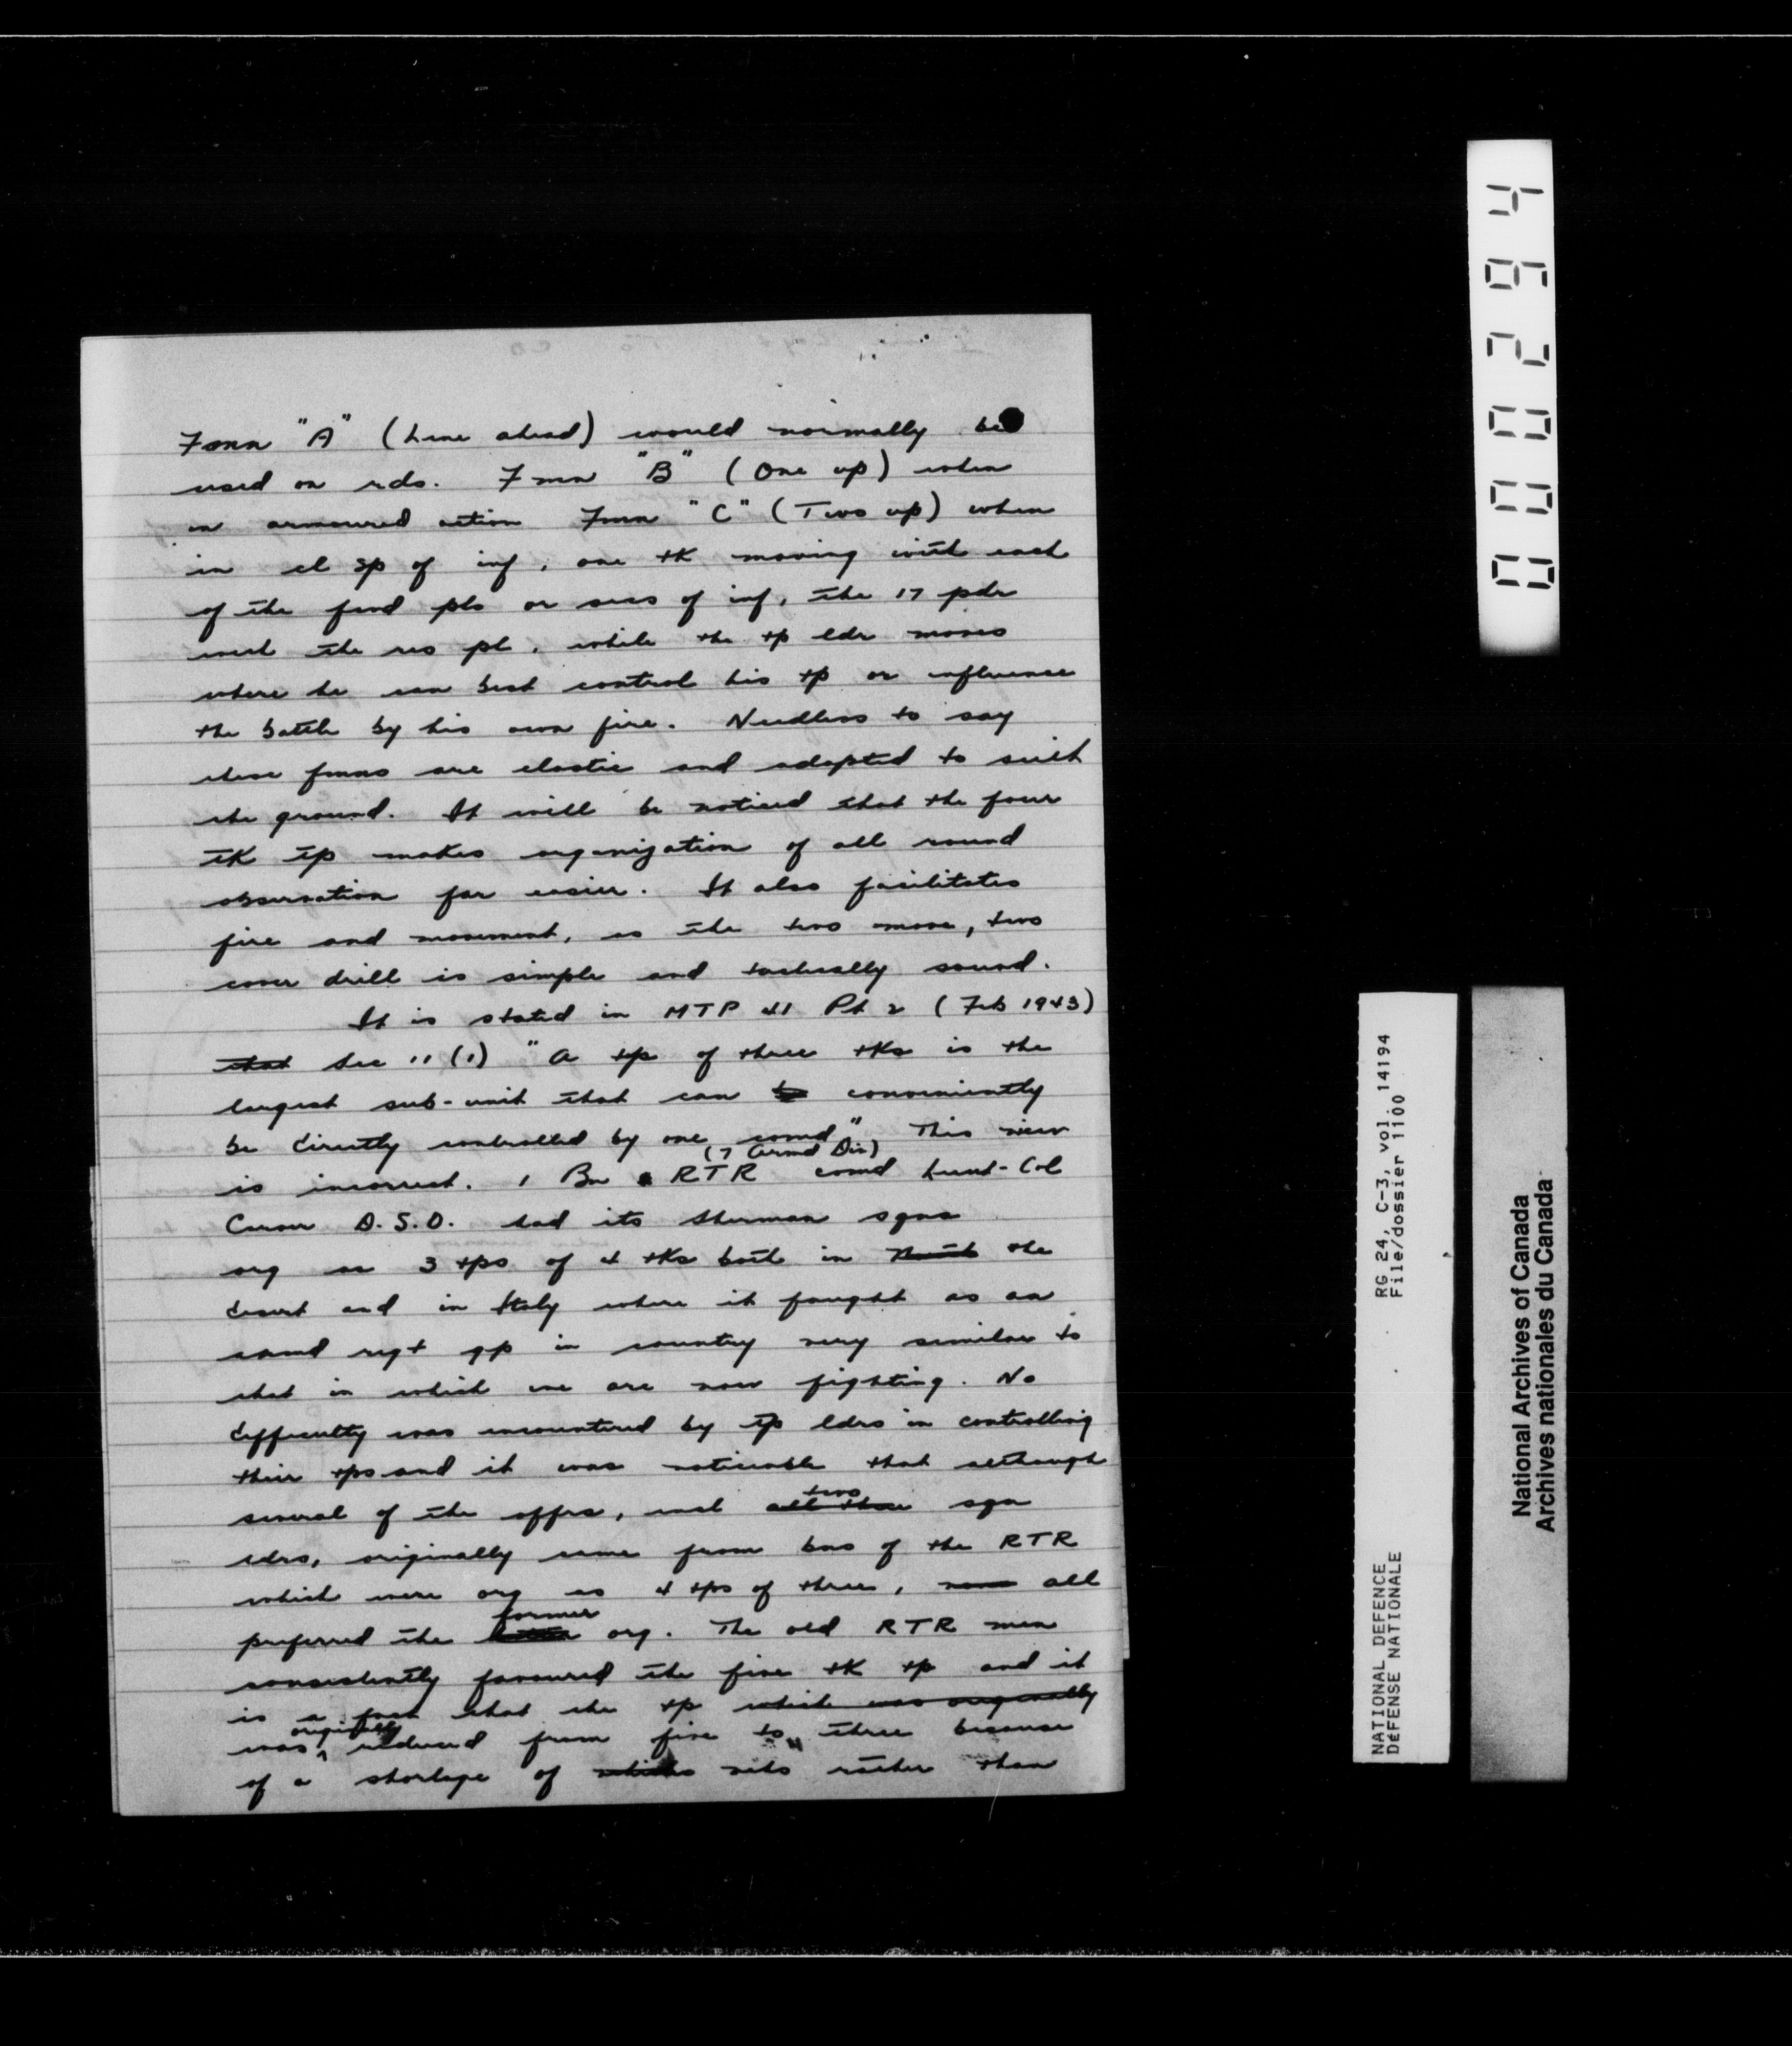 Fmn "A" (Line ahead) would normally be
used on rds. Fmn "B" (One up) when
in armoured action Fmn "C" (Two up) when
in cl sp of inf, one tk moving with each
of the fwd pls or secs of inf, the 17 pdr
with the res pl, while the tp ldr moves
where he can best control his tp or influence
the battle by his own fire. Needless to say
these fmns are elastic and adapted to suit
the ground. It will be noticed that the four
tk tp makes organization of all round
observation far easier. It also facilitates
fire and movement, as the two move, two
cover drill is simple and tactically sound.
It is stated in MTP 41 Pt 2 (Feb 1943)
that Sec 11 (1) "A tp of three tks is the
largest sub-unit that can be conveniently
be directly controlled by one comd" This view
(7 Armd Div)
is incorrect. 1 Bn RTR comd Lieut-Col
Carver D.S.O. had its Sherman sqns
org as 3 tps of 4 tks both in the
desert and in Italy where it fought as an
armd regt gp in country very similar to
that in which we are now fighting. No
difficulty was encountered by tp ldrs in controlling
their tps and it was noticeable that although
two
several of the offrs, incl all three sqn
ldrs, originally came from bns of the RTR
which were org as 4 tps of three, none all
former
preferred the latter org. The old RTR men
consistently favoured the five tk tp and it
is a fact that the tp which was originally
originally
was reduced from five to three because
of a shortage of sets rather than
0000294
RG 24, C-3, vol. 14194
File/dossier 1100
NATIONAL DEFENCE
DÉFENSE NATIONALE
National Archives of Canada
Archives nationales du Canada